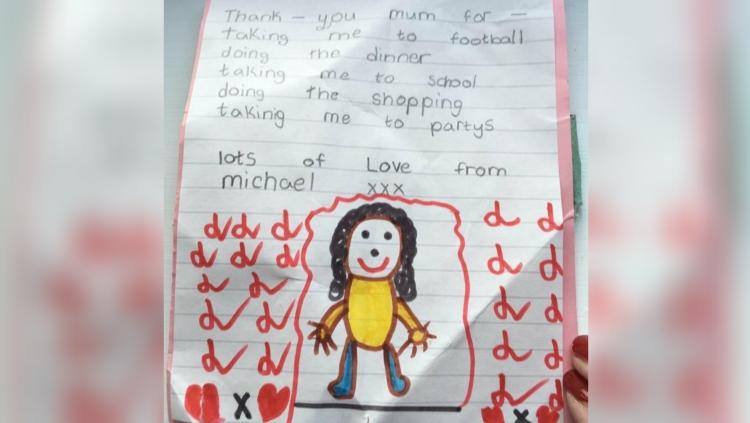 Thank - you mum for -
taking me to football
doing the dinner
taking me to school
doing the shopping
taking me to partys
lots of Love from
michael xxx
X X